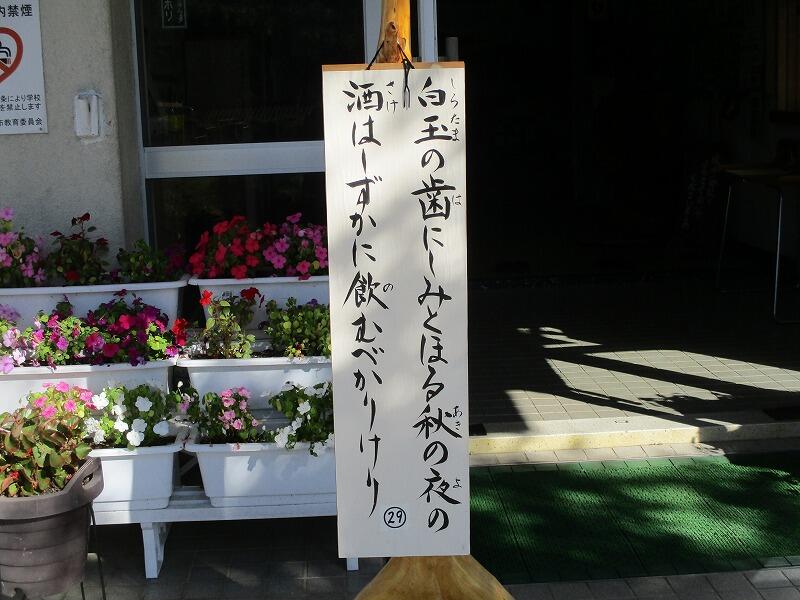 白玉の歯にしみとほる秋の夜の
しらたま
は
あき
よ
酒はしずかに飲むべかりけり
さけ
の
29
内禁煙
条により学校
を禁止します
市教育委員会